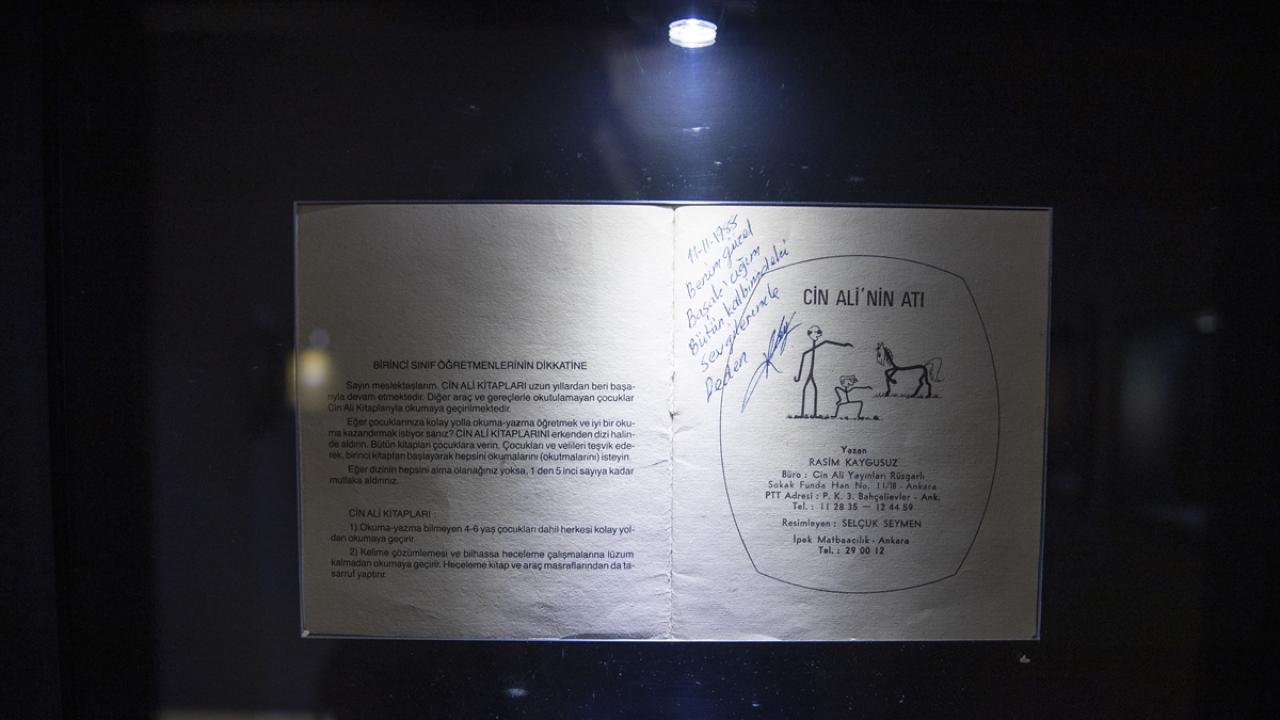 BİRİNCİ SINIF ÖĞRETMENLERİNİN DİKKATİNE
Sayın meslektaşlarım, CİN ALİ KİTAPLARI uzun yıllardan beri başa-
rıyla devam etmektedir. Diğer araç ve gereçlerle okutulamayan çocuklar
Cin Ali Kitaplarıyla okumaya geçirilmektedir.
Eğer çocuklarınıza kolay yolla okuma-yazma öğretmek ve iyi bir oku-
ma kazandırmak istiyor sanız? CİN ALİ KİTAPLARINI erkenden dizi halin-
de aldırın. Bütün kitapları çocuklara verin. Çocukları ve velileri teşvik ede-
rek, birinci kitaptan başlayarak hepsini okumalarını (okutmalarını) isteyin.
Eğer dizinin hepsini alma olanağınız yoksa, 1 den 5 inci sayıya kadar
mutlaka aldırınız.
CİN ALİ KİTAPLARI :
1) Okuma-yazma bilmeyen 4-6 yaş çocukları dahil herkesi kolay yol-
dan okumaya geçirir.
2) Kelime çözümlemesi ve bilhassa heceleme çalışmalarına lüzum
kalmadan okumaya geçirir. Heceleme kitap ve araç masraflarından da ta-
sarruf yaptırır.
11-11-1988
Benim güzel
Başak'cığım
Bütün kalbimdeki
sevgilerimle
Deden
CİN ALİ'NİN ATI
Yazan
RASİM KAYGUSUZ
Büro : Cin Ali Yayınları Rüzgarlı
Sokak Funda Han No. 11/18 - Ankara
PTT Adresi : P. K. 3. Bahçelievler - Ank.
Tel. : 11 28 35 — 12 44 59
Resimleyen : SELÇUK SEYMEN
İpek Matbaacılık - Ankara
Tel. : 29 00 12